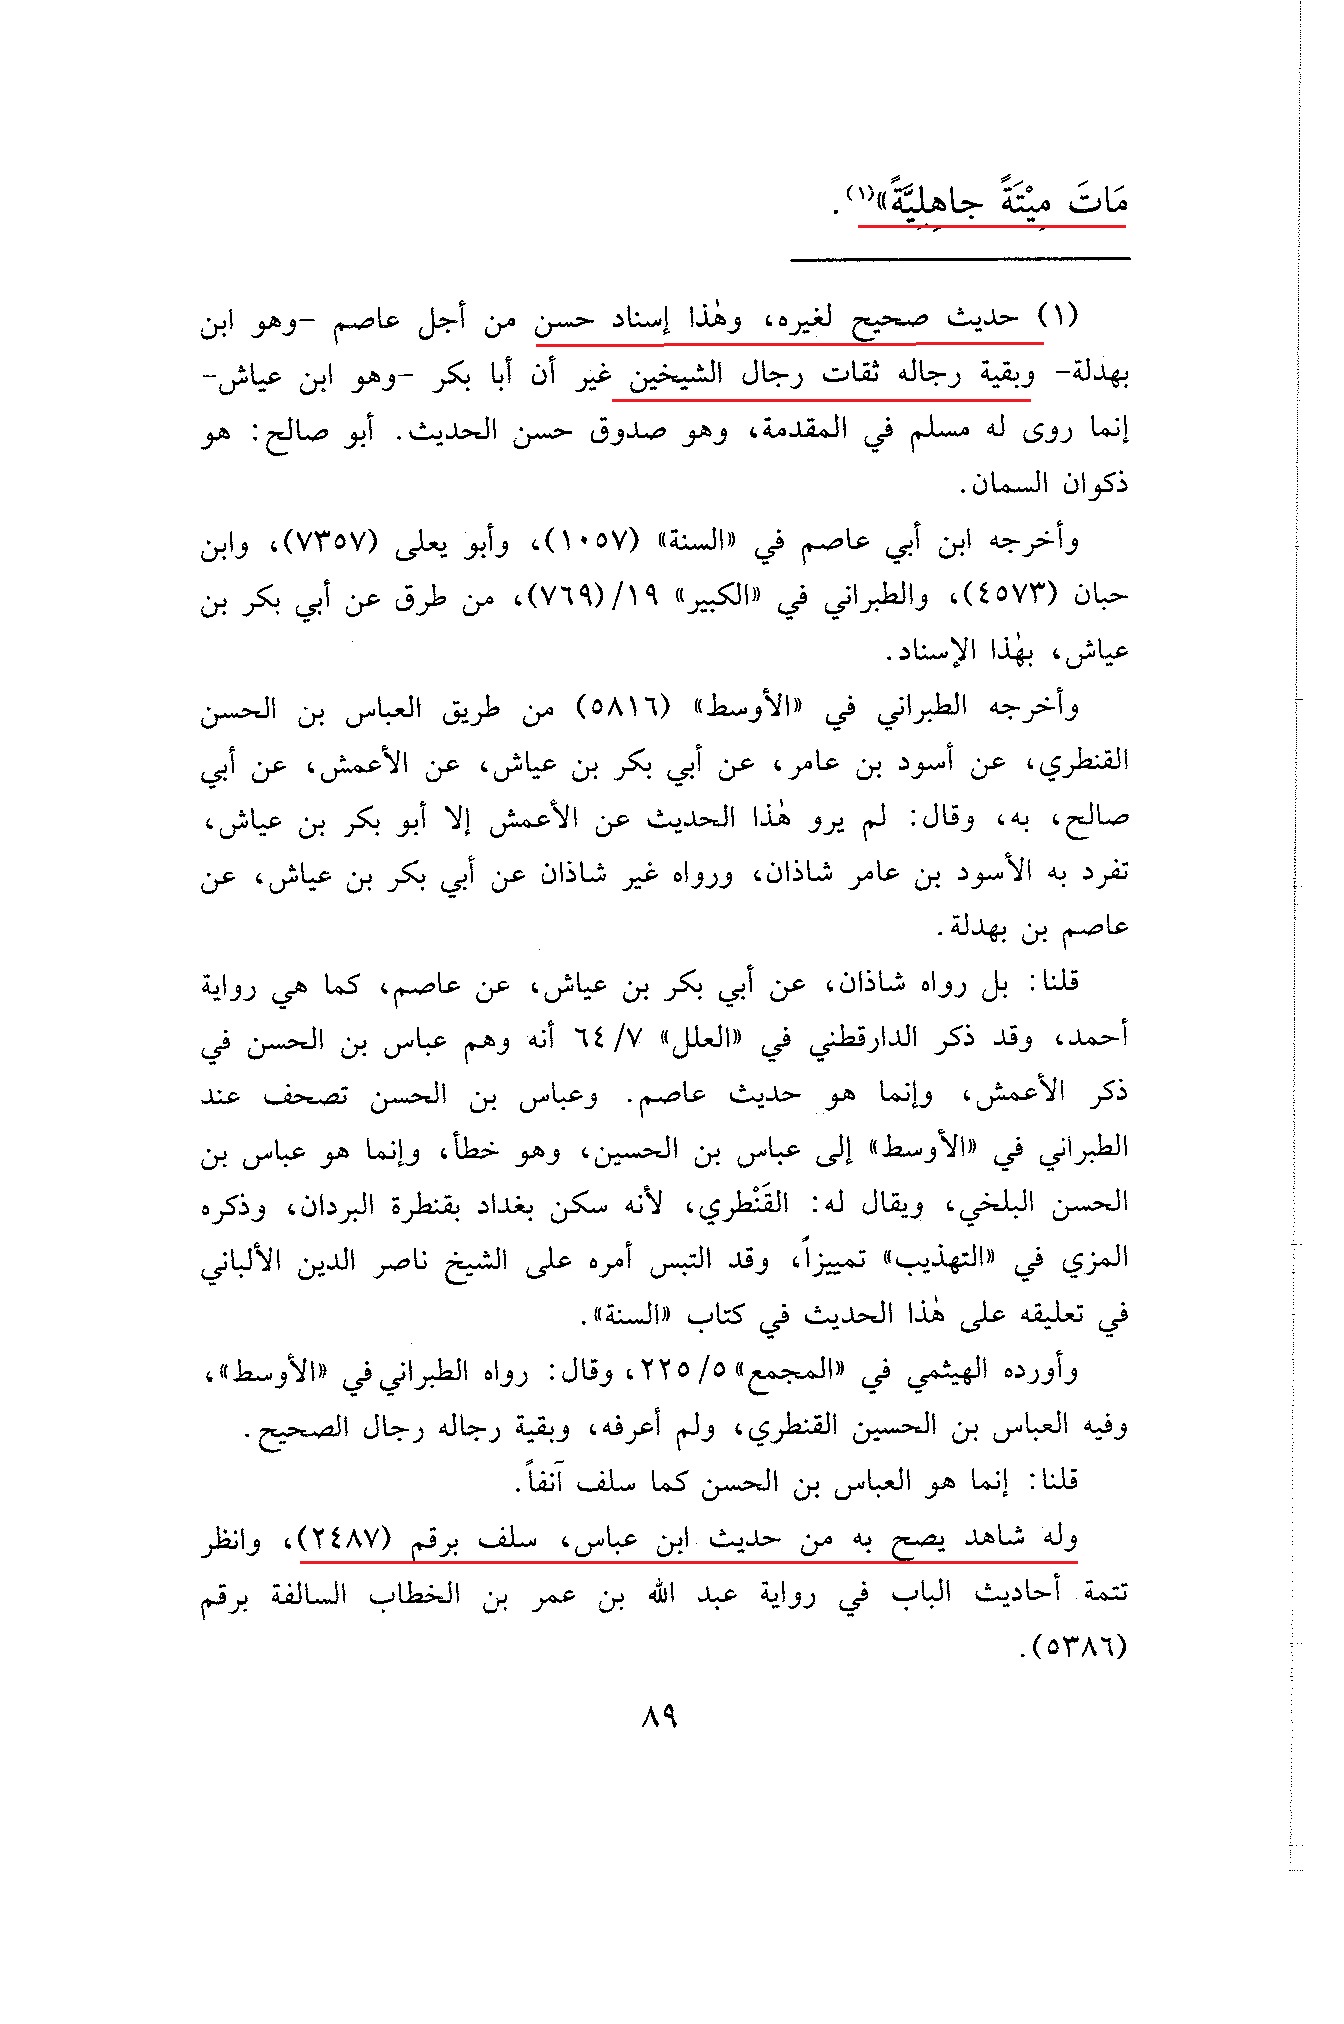 مَاتَ مِيْتَةً جاهِلِيَّةً»(١).
(١) حديث صحيح لغيره، وهٰذا إسناد حسن من أجل عاصم -وهو ابن
بهدلة- وبقية رجاله ثقات رجال الشيخين غير أن أبا بكر -وهو ابن عياش-
إنما روى له مسلم في المقدمة، وهو صدوق حسن الحديث. أبو صالح: هو
ذكوان السمان.
وأخرجه ابن أبي عاصم في «السنة» (١٠٥٧)، وأبو يعلى (٧٣٥٧)، وابن
حبان (٤٥٧٣)، والطبراني في «الكبير» ١٩/(٧٦٩)، من طرق عن أبي بكر بن
عياش، بهٰذا الإسناد.
وأخرجه الطبراني في «الأوسط» (٥٨١٦) من طريق العباس بن الحسن
القنطري، عن أسود بن عامر، عن أبي بكر بن عياش، عن الأعمش، عن أبي
صالح، به، وقال: لم يرو هٰذا الحديث عن الأعمش إلا أبو بكر بن عياش،
تفرد به الأسود بن عامر شاذان، ورواه غير شاذان عن أبي بكر بن عياش، عن
عاصم بن بهدلة.
قلنا: بل رواه شاذان، عن أبي بكر بن عياش، عن عاصم، كما هي رواية
أحمد، وقد ذكر الدارقطني في «العلل» ٧/ ٦٤ أنه وهم عباس بن الحسن في
ذكر الأعمش، وإنما هو حديث عاصم. وعباس بن الحسن تصحف عند
الطبراني في «الأوسط» إلى عباس بن الحسين، وهو خطأ، وإنما هو عباس بن
الحسن البلخي، ويقال له: القَنْطري، لأنه سكن بغداد بقنطرة البردان، وذكره
المزي في «التهذيب» تمييزاً، وقد التبس أمره على الشيخ ناصر الدين الألباني
في تعليقه على هٰذا الحديث في كتاب «السنة».
وأورده الهيثمي في «المجمع» ٥/ ٢٢٥، وقال: رواه الطبراني في «الأوسط»،
وفيه العباس بن الحسين القنطري، ولم أعرفه، وبقية رجاله رجال الصحيح.
قلنا: إنما هو العباس بن الحسن كما سلف آنفاً.
وله شاهد يصح به من حديث ابن عباس، سلف برقم (٢٤٨٧)، وانظر
تتمة أحاديث الباب في رواية عبد الله بن عمر بن الخطاب السالفة برقم
(٥٣٨٦).
٨٩